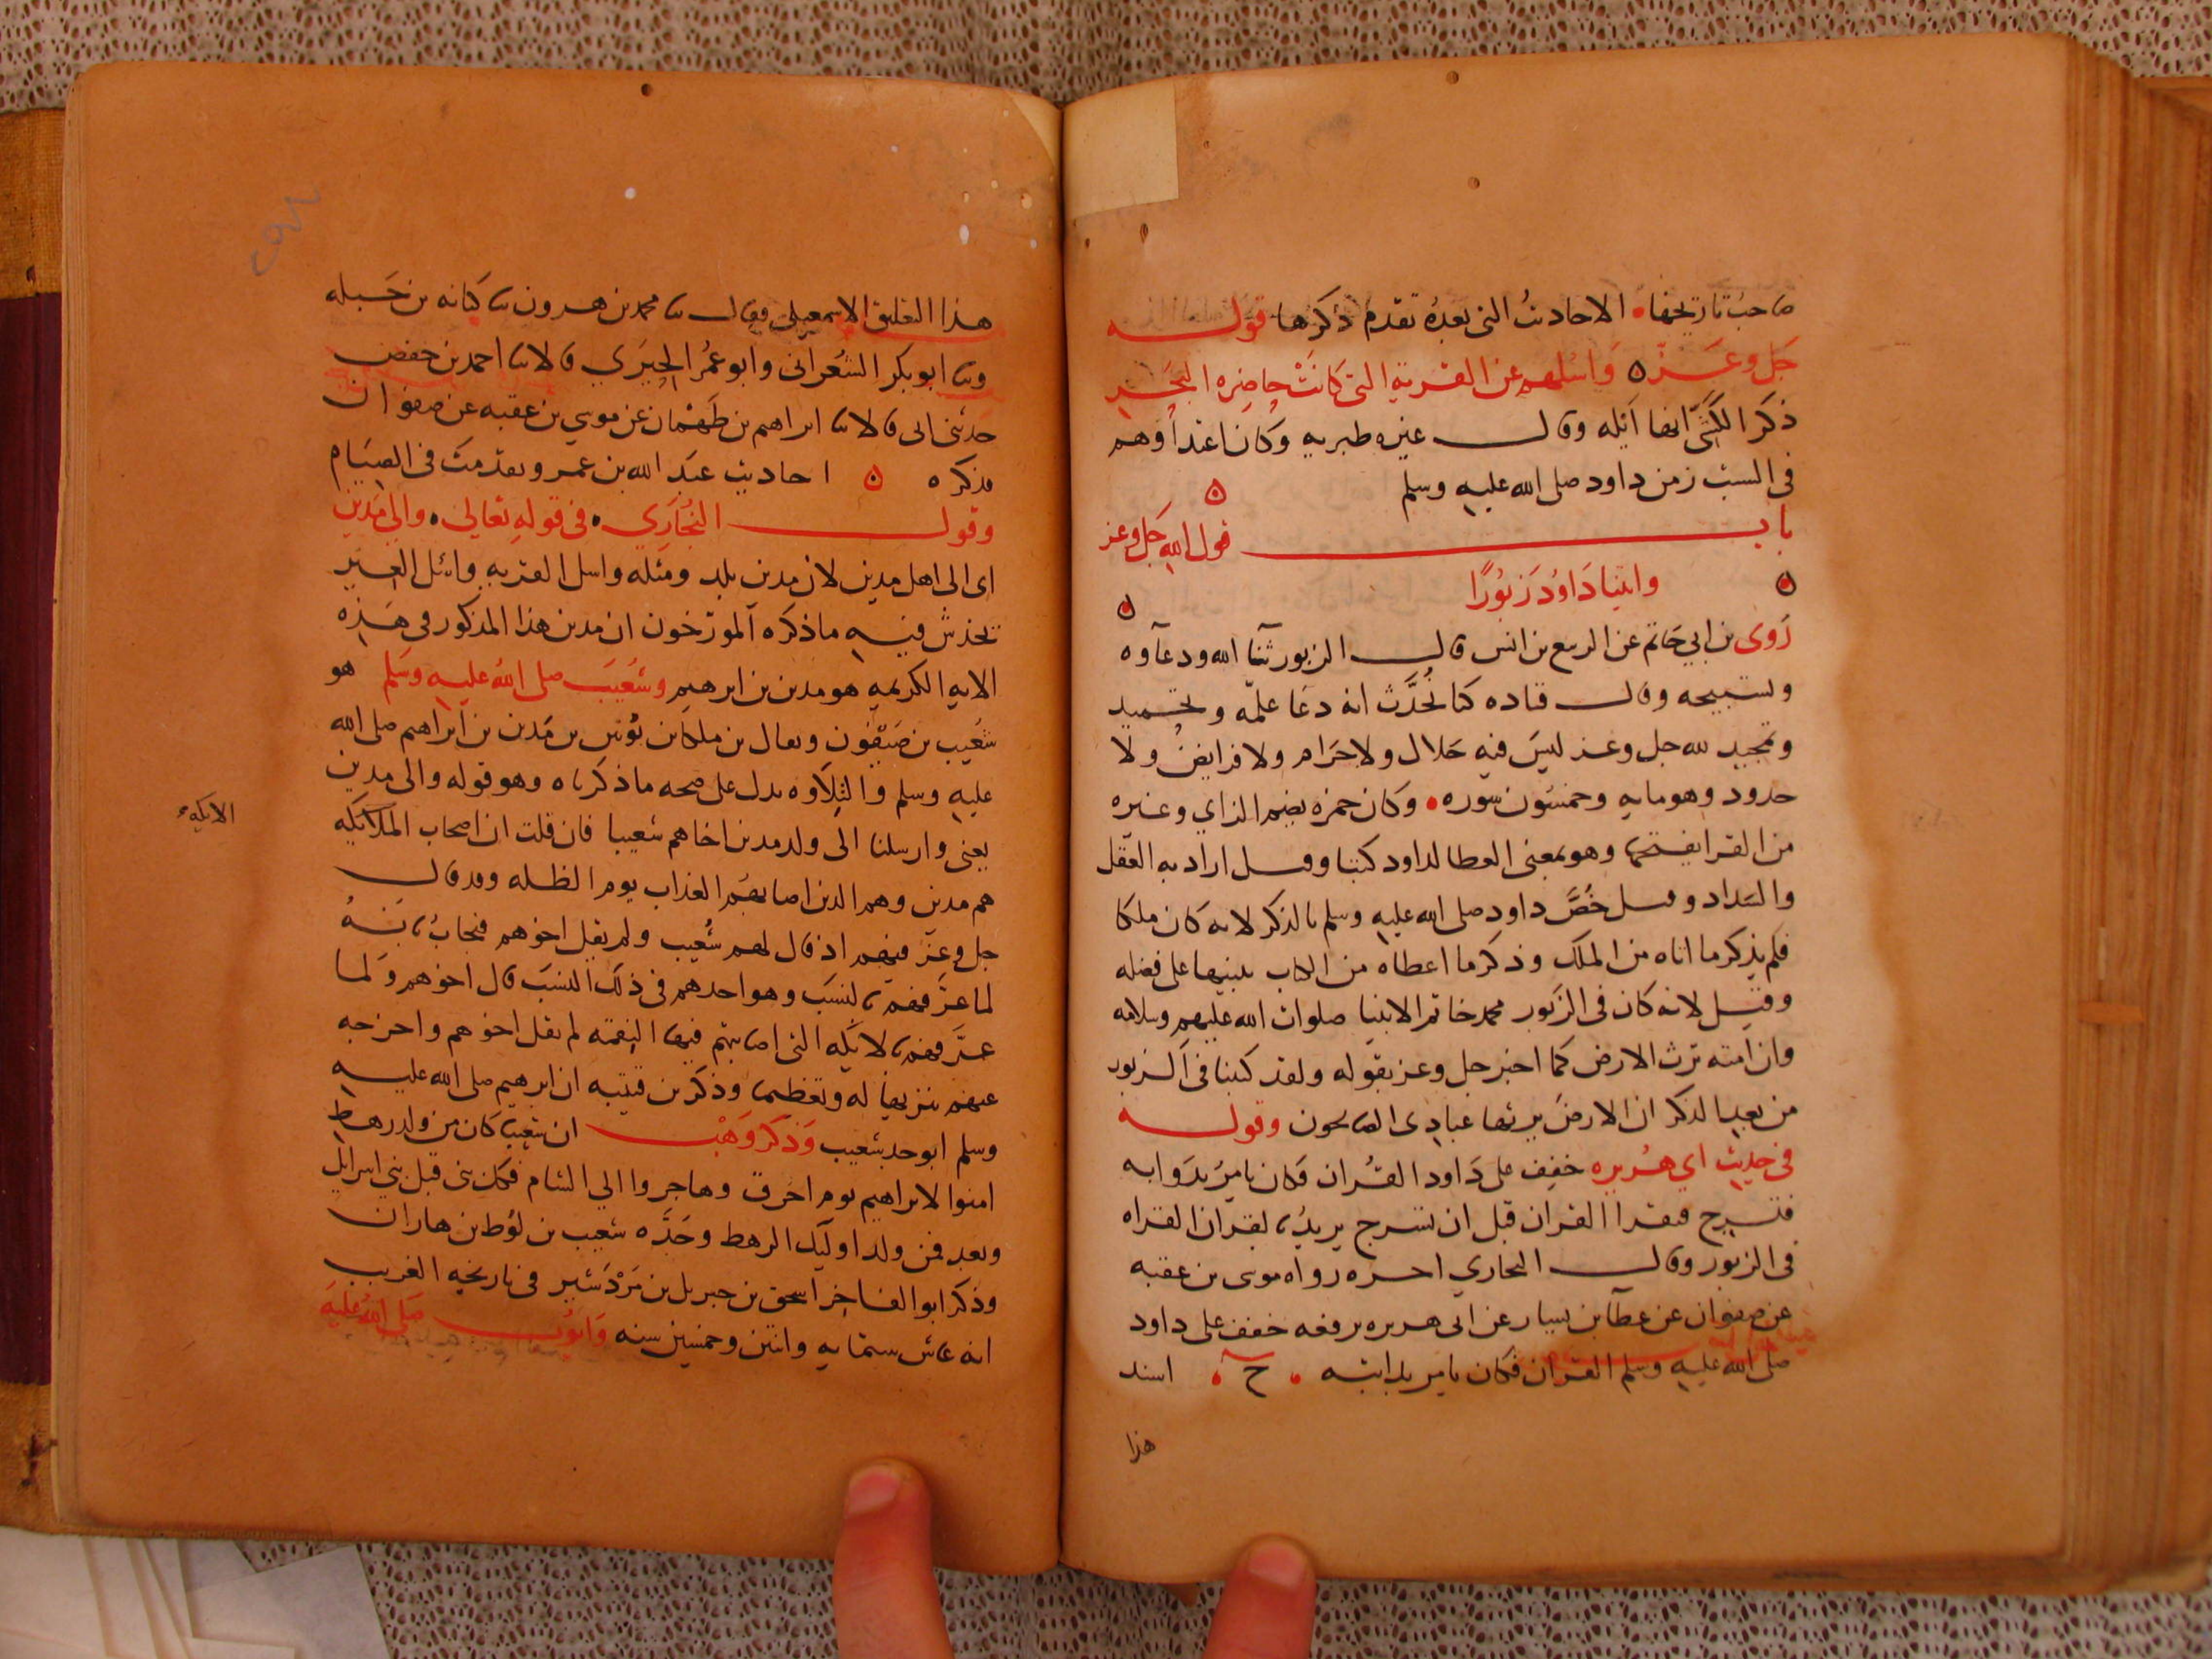 صاحب تاريخها الاحاديث التي بعده تقدم ذكرها قوله
جل وعز واسلهم عن القرية التي كانت حاضره البحر
ذكر الكشي انها ايله وقال غيره طبريه وكان اعتداوهم
في السبت زمن داود صلى الله عليه وسلم
باب قول الله جل وعز
واتينا داود زبورا
روى بن ابي حاتم عن الربيع بن انس قال الزبور ثنا الله ودعاوه
وتسبيحه وقال قتاده كنا نحدث انه دعا علمه وتحميد
وتمجيد لله جل وعز ليس فيه حلال ولا حرام ولا فرايض ولا
حدود وهو مايه وخمسون سوره وكان حمزه يضم الزاي وغيره
من القرا يفتحها وهو بمعنى العطا لداود كتبا وقيل اراد به العقل
والسداد وقيل خص داود صلى الله عليه وسلم بالذكر لانه كان ملكا
فلم يذكر ما اتاه من الملك وذكر ما اعطاه من الكتاب تنبيها على فضله
وقيل لانه كان في الزبور محمد خاتم الانبيا صلوات الله عليهم وسلامه
وان امته ترث الارض كما اخبر جل وعز بقوله ولقد كتبنا في الزبور
من بعد الذكر ان الارض يرثها عبادي الصالحون وقوله
في حديث ابي هريره خفف على داود القران فكان يامر بدوابه
فتسرج فيقرا القران قبل ان تسرج يريد بالقران القراه
في الزبور وقال البخاري اخره رواه موسى بن عقبه
عن صفوان عن عطآ بن يسار عن ابي هريره يرفعه خفف على داود
صلى الله عليه وسلم القران فكان يامر بدابته ح اسند
هذا
هذا التعليق الاسمعيلي فقال ثنا محمد بن هرون ثنا كنانه بن جبله
وثنا ابو بكر الشعراني وابو عمر الحيري قالا ثنا احمد بن حفص
حدثني ابي قالا ثنا ابراهيم بن طهمان عن موسى بن عقبه عن صفوان
فذكره احاديث عبد الله بن عمرو تقدمت في الصيام
وقول البخاري في قوله تعالى والى مدين
اي الى اهل مدين لان مدين بلد ومثله واسل القريه واسل العير
يخدش فيه ما ذكره المورخون ان مدين هذا المذكور في هذه
الايه الكريمه هو مدين بن ابرهيم وشعيب صلى الله عليه وسلم هو
شعيب بن صيفون ويقال بن ملكا بن نويب بن مدين بن ابراهيم صلى الله
عليه وسلم والتلاوه تدل على صحه ما ذكرناه وهو قوله والى مدين
يعني وارسلنا الى ولد مدين اخاهم شعيبا فان قلت ان اصحاب الملايكه
الايكه
هم مدين وهم الذين اصابهم العذاب يوم الظله وقد قال
جل وعز فيهم اذ قال لهم شعيب ولم يقل اخوهم فيجاب بانه
لما عرفهم بالنسب وهو احدهم في ذلك النسب قال اخوهم ولما
عرفهم بالايكه التي اصابتهم فيها النقمه لم يقل اخوهم واخرجه
عنهم تنزيها له وتعظيما وذكر بن قتيبه ان ابرهيم صلى الله عليه
وسلم ابو جد شعيب وذكر وهب ان شعيبا كان من ولد رهط
امنوا لابراهيم يوم احرق وهاجروا الى الشام فكل نبي قبل بني اسرايل
وبعد فمن ولد اوليك الرهط وجده شعيب بن لوط بن هاران
وذكر ابو المفاخر اسحق بن جبريل بن مردشير في تاريخه الغريب
انه عاش ستمايه واثنتين وخمسين سنه وايوب صلى الله عليه